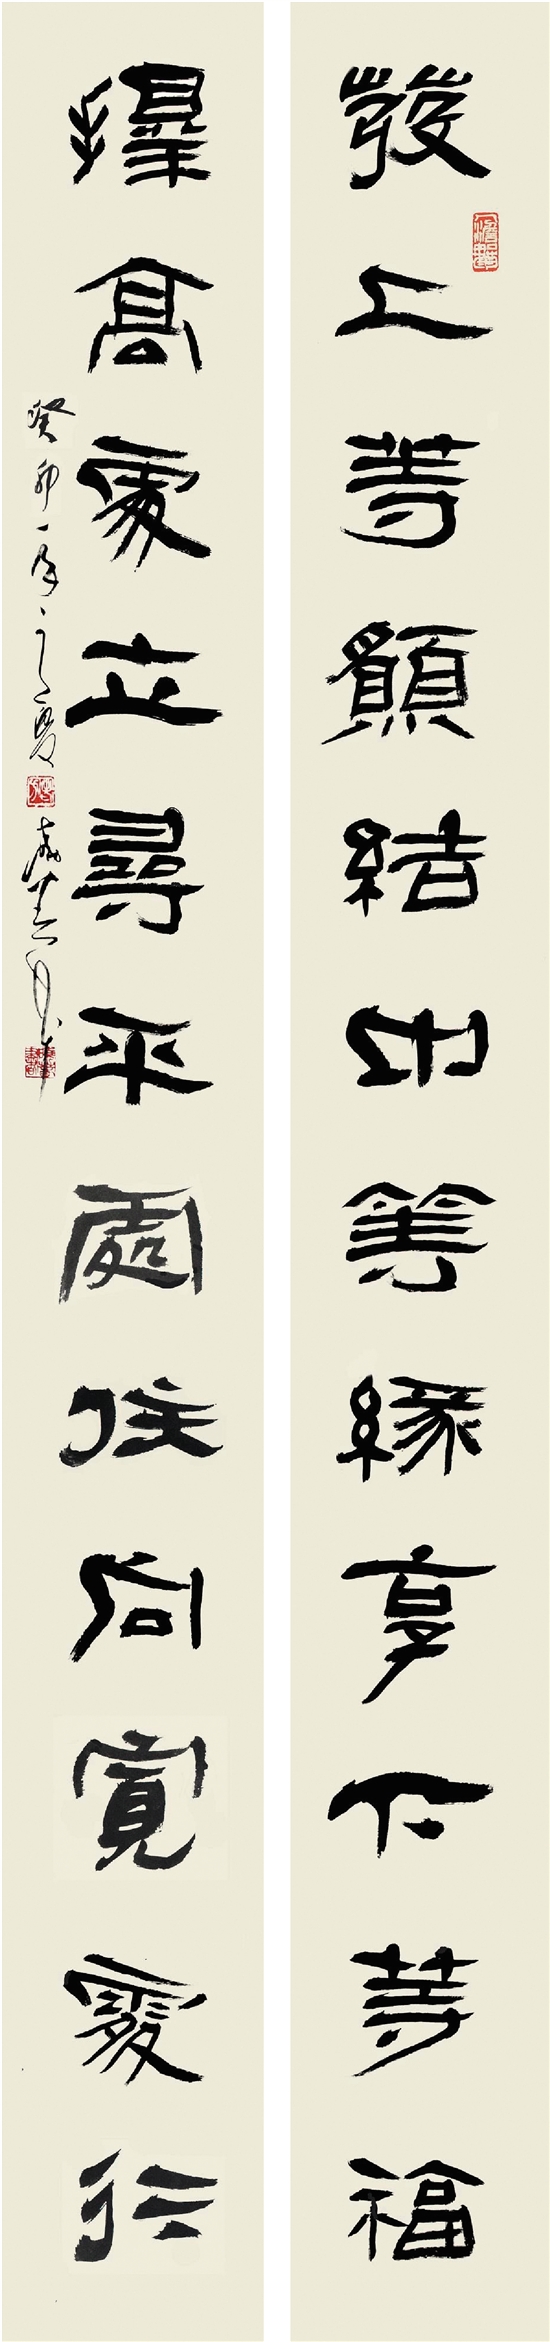 發上等願結中等緣享下等福
擇高處立尋平處住向寬處行
癸卯年之夏